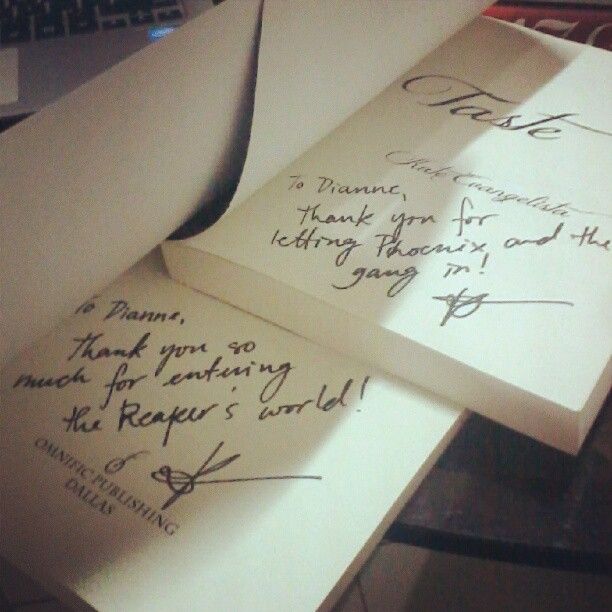 Taste
Kate Evangelista
To Dianne,
Thank you for
letting Phoenix and the
gang in!
To Dianne,
Thank you so
much for entering
the Reaper's world!
OMNIFIC PUBLISHING
DALLAS